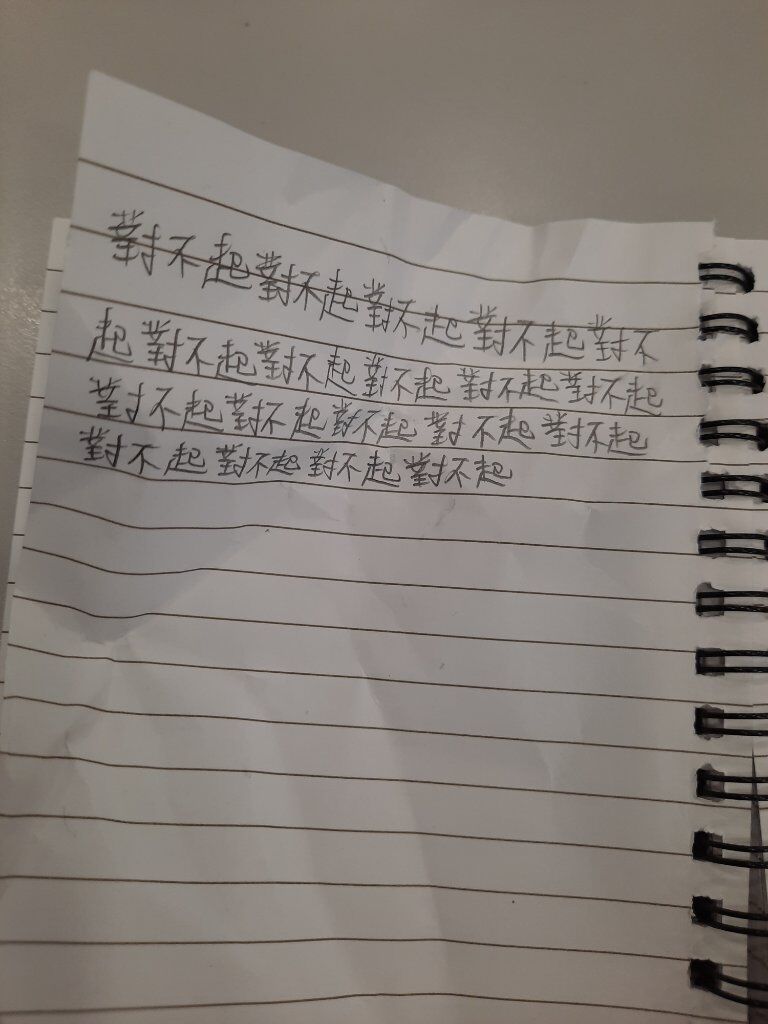 對不起對不起對不起對不起對不
起對不起對不起對不起對不起對不起
對不起對不起對不起對不起對不起
對不起對不起對不起對不起